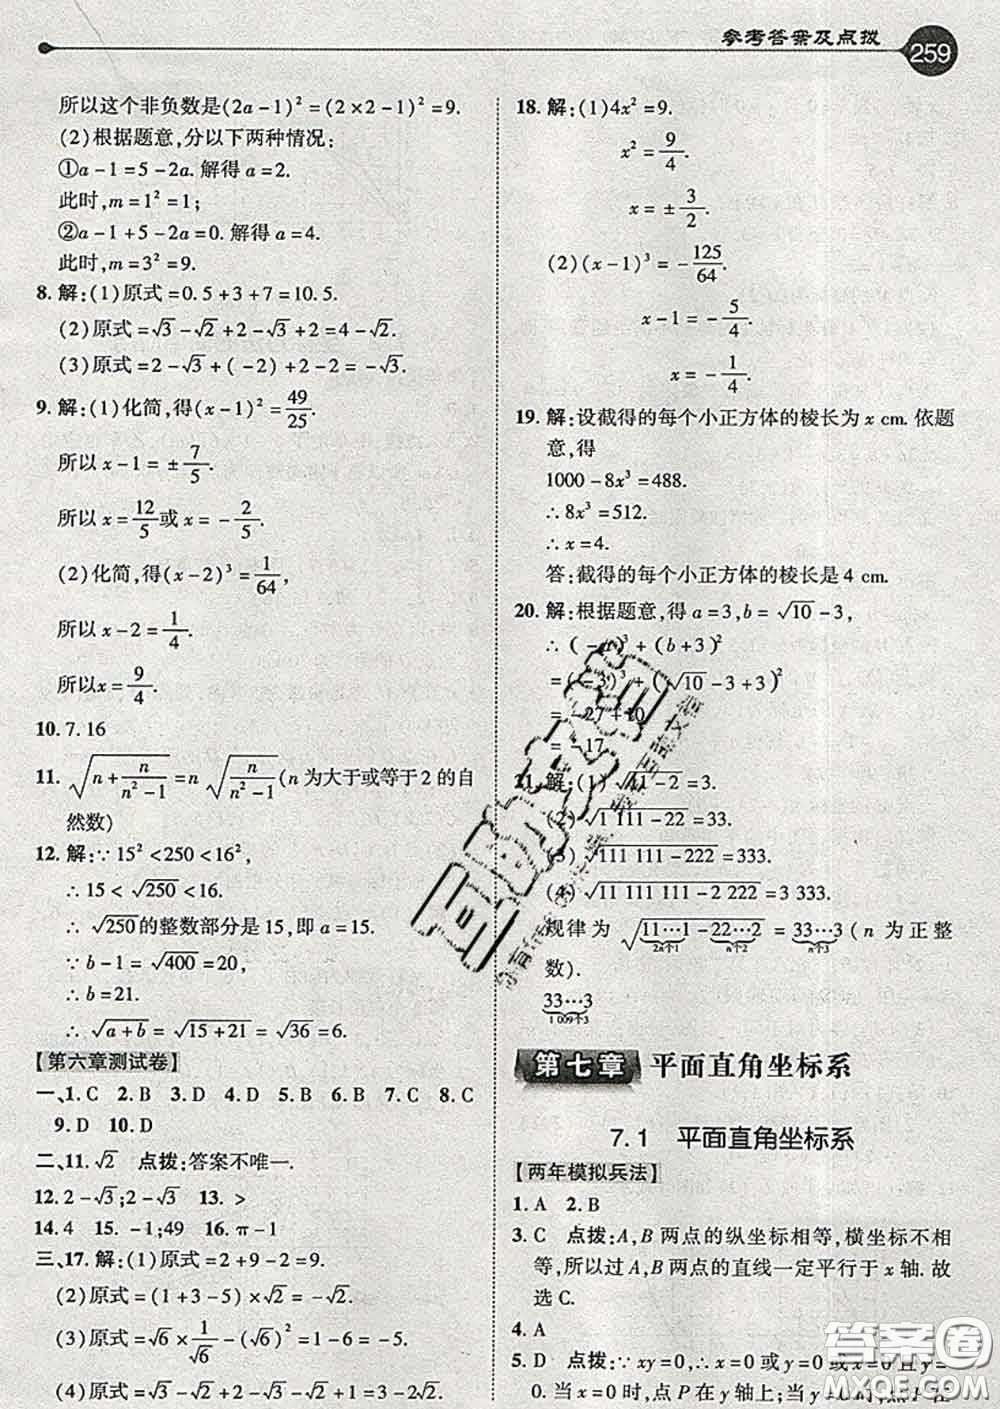 参考答案及点拨 259
所以这个非负数是(2a-1)²=(2×2-1)²=9.
(2)根据题意,分以下两种情况:
①a-1=5-2a. 解得a=2.
此时,m=1²=1;
②a-1+5-2a=0. 解得a=4.
此时,m=3²=9.
8. 解:(1)原式=0.5+3+7=10.5.
(2)原式=√3-√2+2-√3+2=4-√2.
(3)原式=2-√3+(-2)+2-2=-√3.
9. 解:(1)化简,得(x-1)²=49/25.
所以x-1=±7/5.
所以x=12/5或x=-2/5.
(2)化简,得(x-2)³=1/64,
所以x-2=1/4.
所以x=9/4.
10. 7.16
11. √(n+n/(n²-1))=n√(n/(n²-1))(n为大于或等于2的自
然数)
12. 解:∵15²<250<16²,
∴15<√250<16.
∴√250的整数部分是15,即a=15.
∵b-1=√400=20,
∴b=21.
∴√(a+b)=√(15+21)=√36=6.
【第六章测试卷】
一、1. C 2. B 3. D 4. D 5. B 6. B 7. C 8. C
9. D 10. D
二、11. √2 点拨:答案不唯一.
12. 2-√3;2-√3 13. >
14. 4 15. -1;49 16. π-1
三、17. 解:(1)原式=2+9-2=9.
(2)原式=(1+3-5)×√2=-√2.
(3)原式=√6×1/√6-(√6)²=1-6=-5.
(4)原式=√3-√2+√2-1=√3-1.
18. 解:(1)4x²=9.
x²=9/4.
x=±3/2.
(2)(x-1)³=-125/64.
x-1=-5/4.
x=-1/4.
19. 解:设截得的每个小正方体的棱长为x cm. 依题
意,得
1000-8x³=488.
∴8x³=512.
∴x=4.
答:截得的每个小正方体的棱长是4 cm.
20. 解:根据题意,得a=3,b=√10-3,
∴(-a)³+(b+3)²
=(-3)³+(√10-3+3)²
=-27+10
=-17.
21. 解:(1)√(11-2)=3.
(2)√(1 111-22)=33.
(3)√(111 111-222)=333.
(4)√(11 111 111-2 222)=3 333.
规律为√(11…1-22…2)=33…3(n为正整
2n个1 n个2 n个3
数).
33…3
1 009个3
第七章 平面直角坐标系
7.1 平面直角坐标系
【两年模拟兵法】
1. A 2. B
3. C 点拨:A,B两点的纵坐标相等,横坐标不相
等,所以过A,B两点的直线一定平行于x轴. 故
选C.
4. A
5. D 点拨:∵xy=0,∴x=0或y=0或x=0且y=
0. 当x=0时,点P在y轴上;当y=0时,点P在
答案圈
MXQE.COM